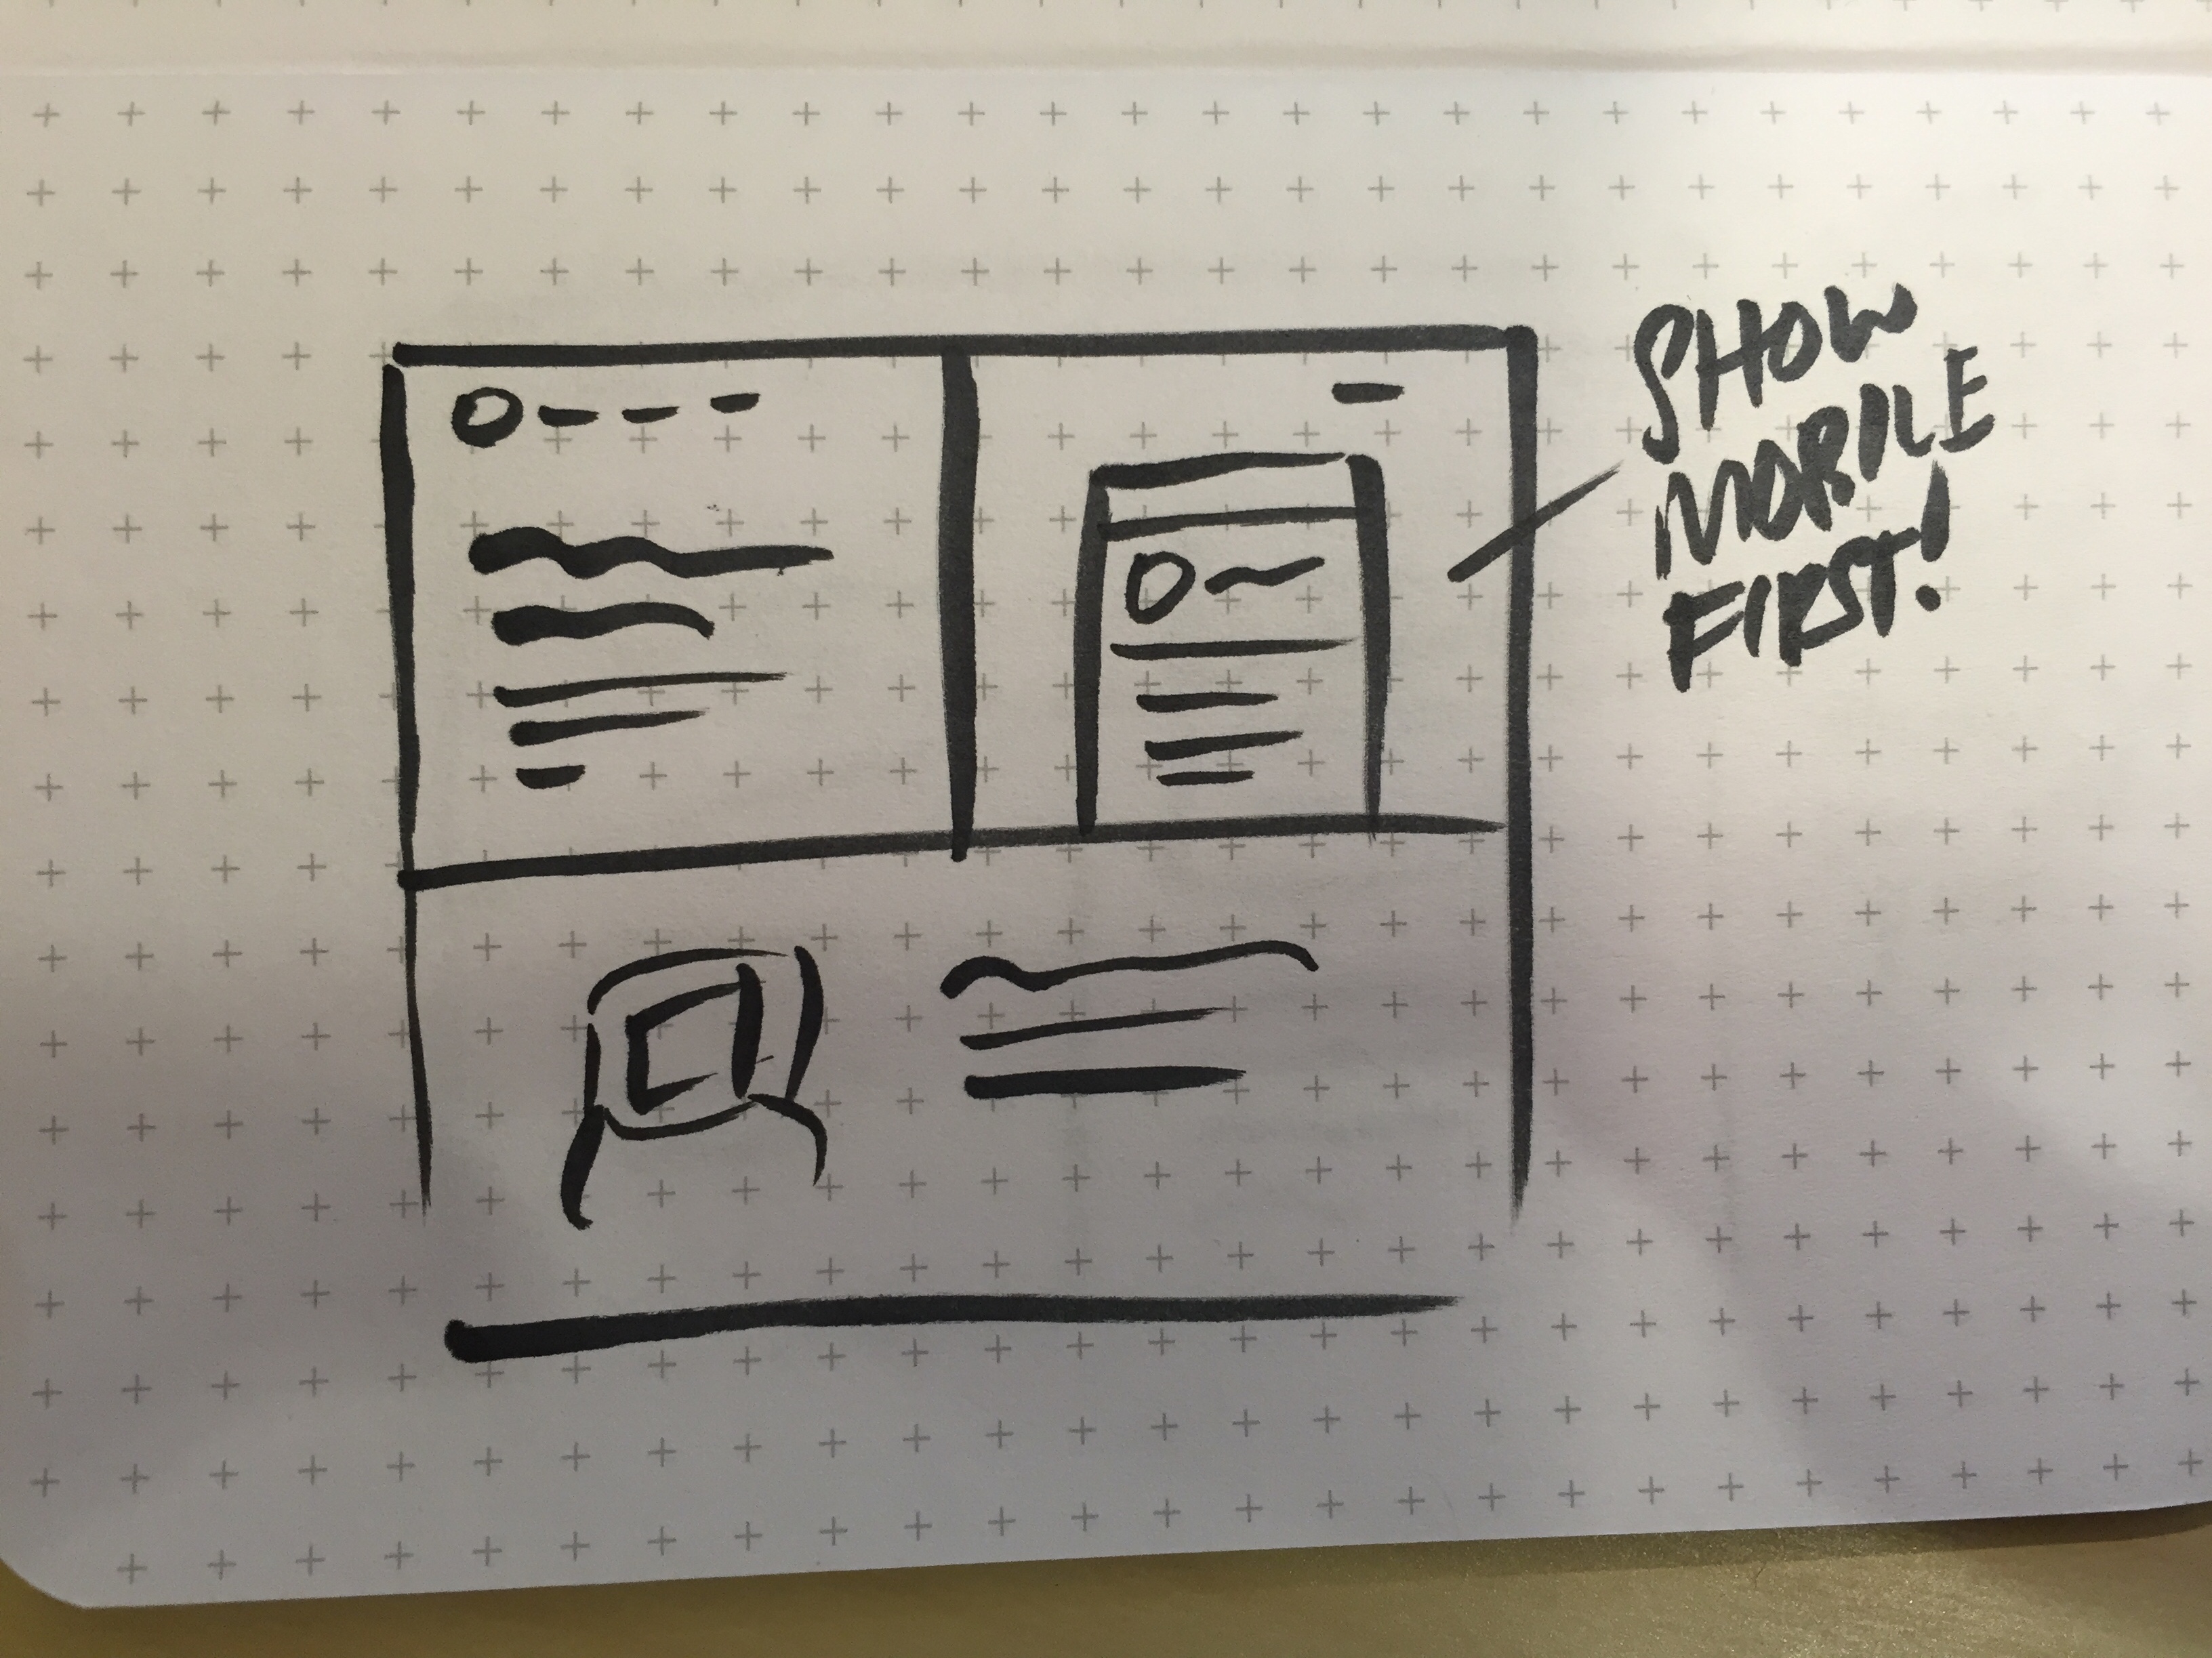 SHOW
MOBILE
FIRST!